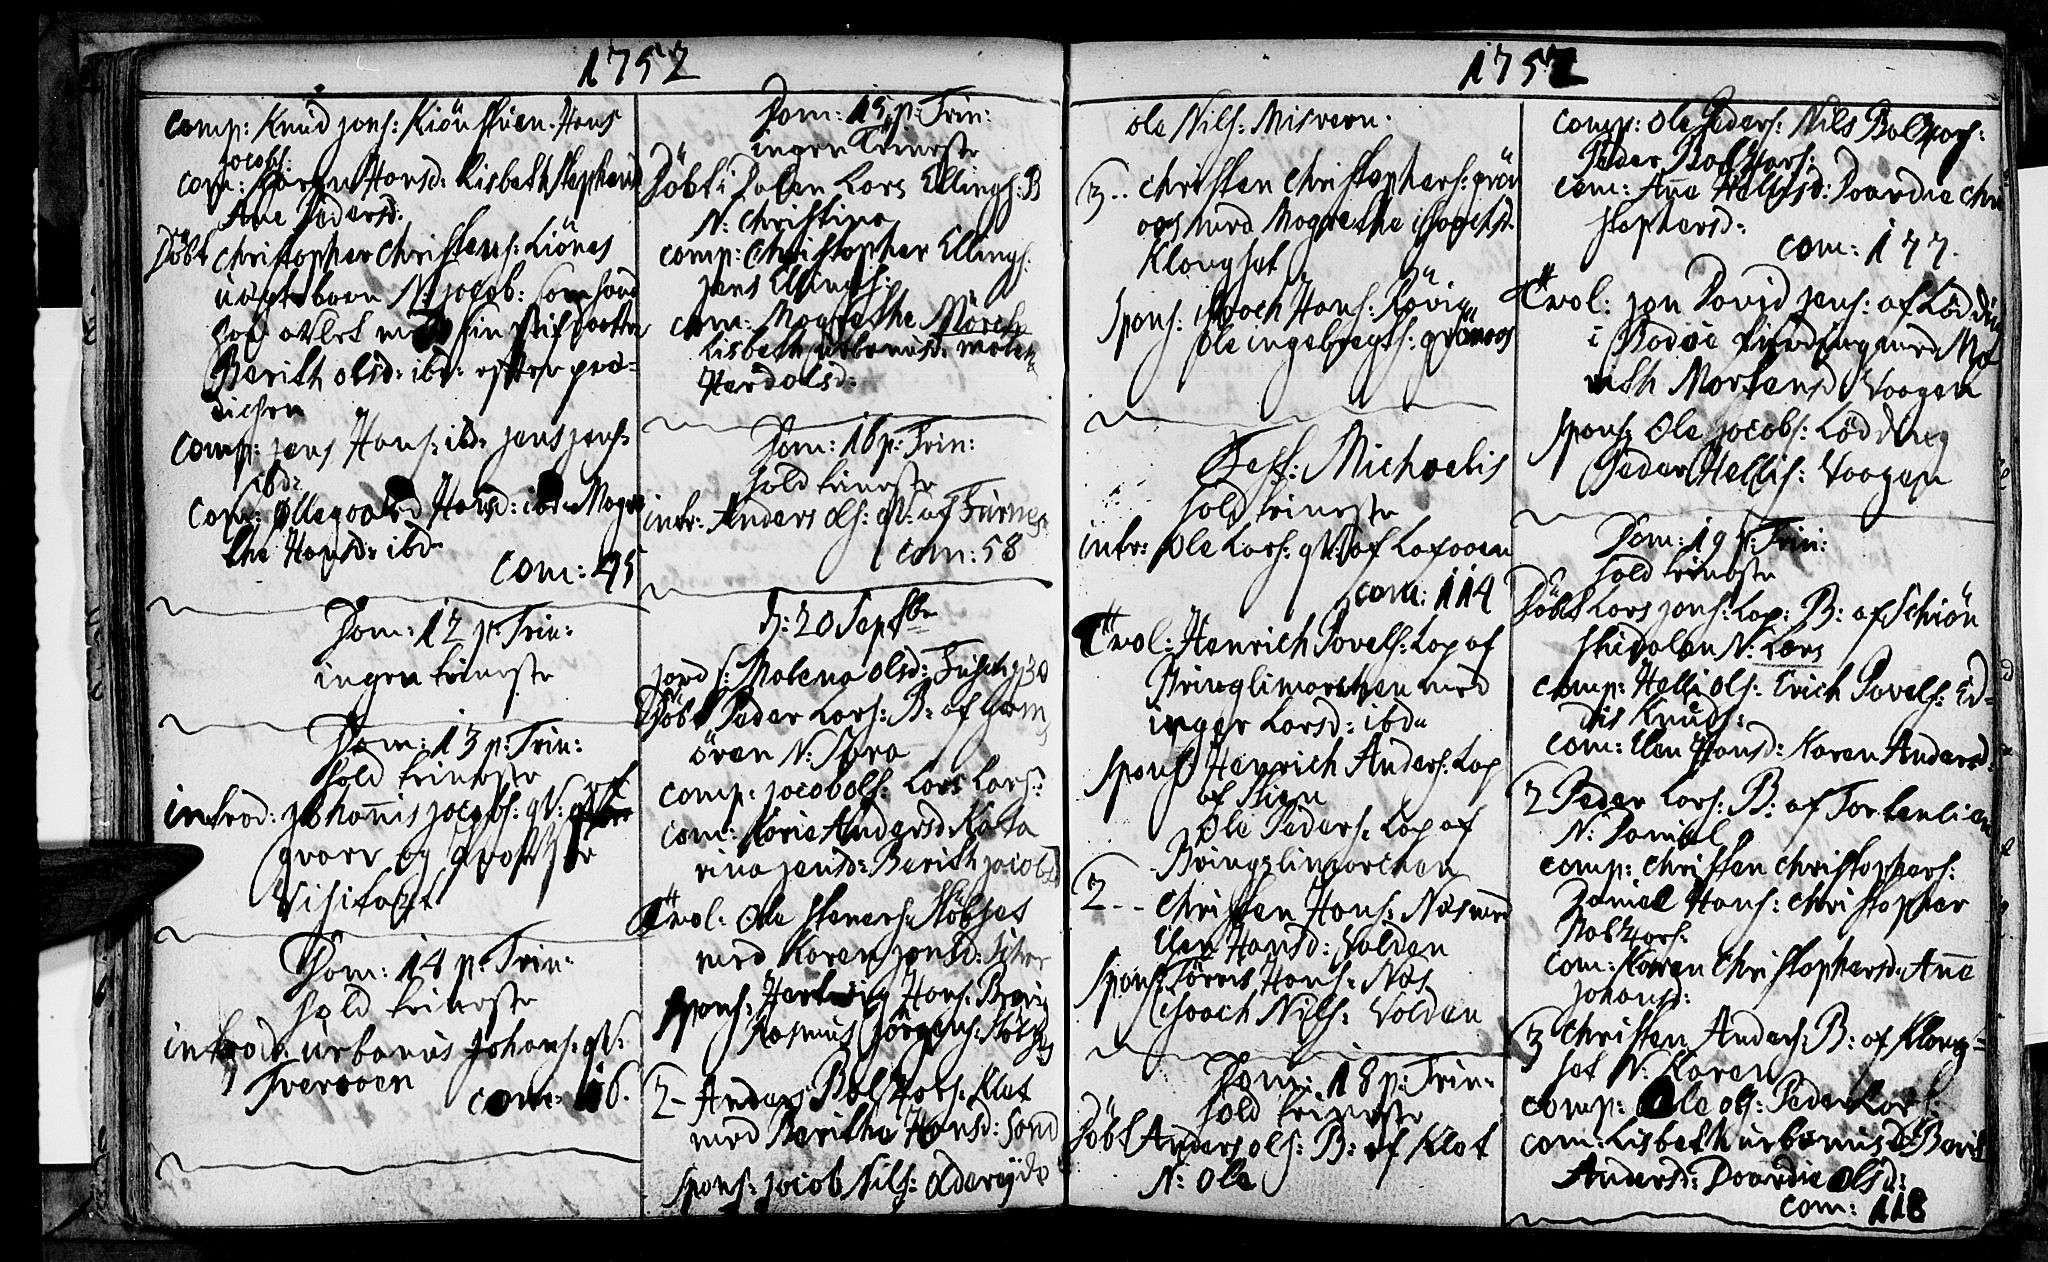 1752
comp: Knud Jons: Kiönstuen. Hans
Jacobs:
com: Karen Hansd: Lisbeth Stephansd
Ane Pedersd:
Döbt Christopher Christens: Liönes
uægte barn N: Jacob: som hand
har avlet med sin stifdaatter
Berith olsd: ibd: efter præ=
dichen
comp: Jens Hans: ibd: Jens Jens:
ibd:
com: Ollegaard Hansd: ibd: Magre
the Hansd: ibd
com: 95
Dom: 12 p: Trin:
ingen tieneste
Dom: 13 p: Trin:
hold tieneste
introd: Johannis Jacobs: qv: af
qvarv og
visitatz
Dom: 14 p: Trin:
hold tieneste
introd: urbanus Johans: qv:
Tveraaen
com: 16.
Dom: 15 p: Trin:
ingen Tieneste
Döbt i Dalen Lars Ellings: B
N: Christina
comp: Christopher Ellings:
Jens Ellings:
com: Magrethe Mörch
Lisbeth urbanusd: malena
Hardolsd:
Dom: 16 p: Trin:
hold tieneste
intr: Anders ols: qv: af Furnes
com: 58
D: 20 Septbr
jord s: Malena olsd:
Döbt Peder Lars: B: af
ören N: Sara
comp: Jacob ols: Lars Lars:
com: Marie Andersd: Kata
rina Jensd: Berith Jacobsd
Trol: Ole Steners: Stöbset
med Karen Jonsd:
spons: Hertvig Hans:
Rasmus Jörgens: Stöbset
2- Anders Baltzars: Klet
med Beritha Hansd: Sand
spons: Jacob Nils: Alderejde
1752
ole Nils: Misvern.
3.. Christen Christophers: grön
aas med Magrethe isachsd:
Klongset
spons: isach Hans: Rövig
ole ingebregts: grönaas
Fest: Michaelis
hold tieneste
intr: Ole Lars: qv: af Laxaaen
com: 114
Trol: Henrich Povels: Lap af
Bringslimarchen med
inger Larsd: ibd
spons: Henrich Anders: Lap
af Stien
Ole Peders: Lap af
Bringslimarchen
2.. Christen Hans: Næs med
Elen Hansd: Valden
spons: Törris Hans: Næs
isaach Nils: Valden
Dom: 18 p: Trin:
hold tieneste
Döbt Anders ols: B: af Klet
N: Ole
comp: Ole Peders: Nils Baltzars:
Peder Baltzars:
com: Ane Hellisd: Daardie Chri
stophersd:
com: 177.
Trol: Jon David Jens: af Lödding
i Bodöe fierding med Ma
rith Mortensd Vaagen
spons: Ole Jacobs: Lödding
Peder Hellis: Vaagen
Dom: 19 p: Trin:
hold tieneste
Döbt Lars Jons: Lap: B: af Schiön
stuedalen N: Lars
comp: Helli ols: Erich Povels: Ed-
dis Knuds:
com: Elen Hansd: Karen Andersd:
2 Peder Lars: B: af Torkenlien
N: Daniel
comp: Christen Christophers:
Daniel Hans: Christopher
Baltzars:
com: Karen Christophersd: Ane
Johansd:
3 Christen Anders: B: af Klong=
set N: Karen
comp: Ole ols: Peder Lars:
com: Lisbeth urbanusd Berit
Andersd: Daardie olsd:
com: 118